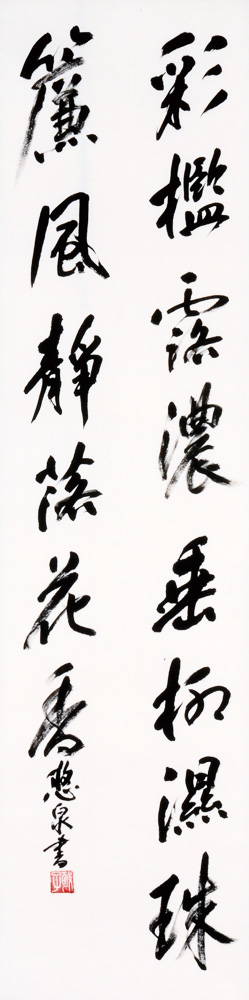 彩檻露濃垂柳濕珠
簾風靜落花香憨泉書